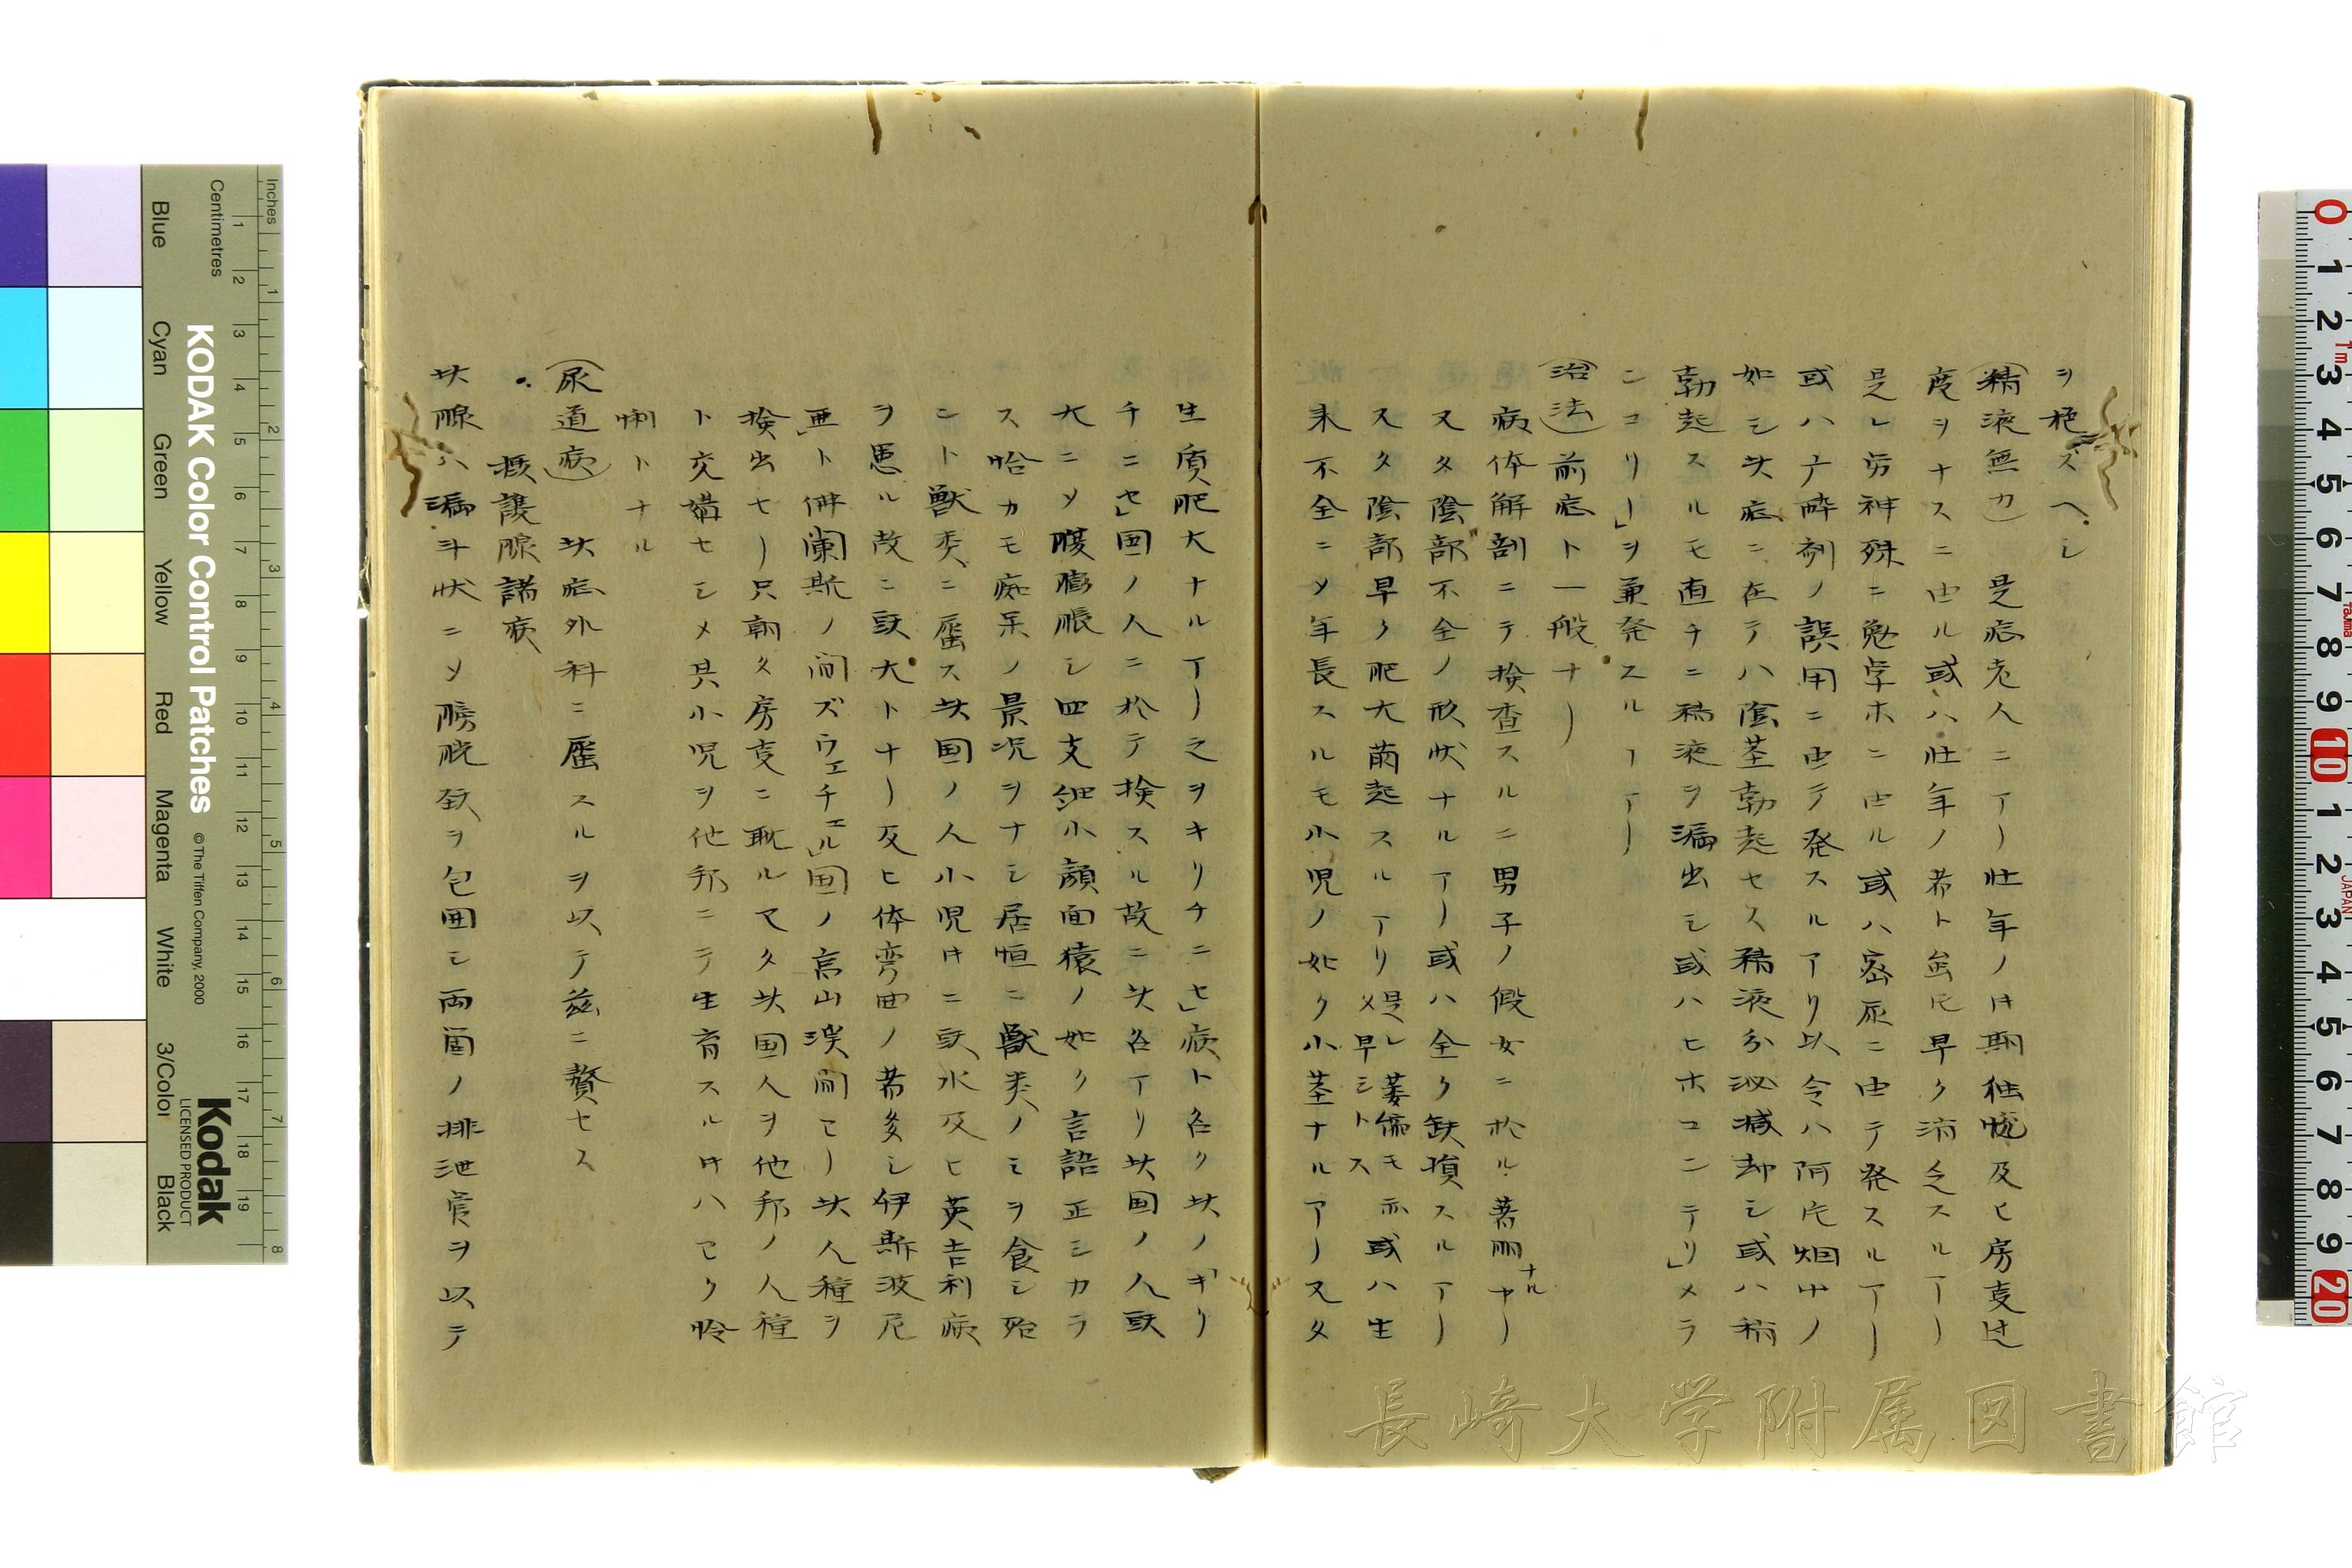 ヲ施スヘシ
(精液無力) 是症老人ニアリ壮年ノ時期恍惚及ヒ房事過
度ヲナスニ由ル或ハ壮年ノ者ト虽𪜈早ク消乏スルアリ
是レ労神殊ニ勉学ホニ由ル或ハ密尿ニ由テ発スルアリ
或ハ麻酔剤ノ誤用ニ由テ発スルアリ以令ハ阿片烟中ノ
如シ此症ニ在テハ陰茎勃起セス精液分泌減却シ或ハ稍
勃起スルモ直チニ精液ヲ漏出シ或ハヒホコンデリ」メラ
ンコリー」ヲ兼発スルアリ
(治法) 前症ト一般ナリ
病体解剖ニテ検査スルニ男子ノ仮女ニ於ル著明ナルナリ
又タ陰部不全ノ形状ナルアリ或ハ全ク欠損スルアリ
又タ陰部早ク肥大萠起スルアリ 是レ萎縮モ亦
メ早シトス 或ハ生
来不全ニメ年長スルモ小児ノ如ク小茎ナルアリ又タ
生質肥大ナルアリ之ヲキリチニセ」病ト名ク此ノ「キリ
チニセ」国ノ人ニ於テ検スル故ニ此名アリ此国ノ人頭
大ニメ腹膨脹シ四支細小顔面猿ノ如ク言語正シカラ
ス恰カモ痴呆ノ景况ヲナシ居恒ニ獣類ノミヲ食シ殆
ント獣类ニ属ス此国ノ人小児時ニ頭水及ヒ英吉利病
ヲ患ル故ニ頭大トナリ及ヒ体弯曲ノ者多シ伊斯波尼
亜」ト佛蘭斯ノ间ズウェチェル」国ノ高山渓间ニモ此人種ヲ
検出セリ只朝タ房事ニ耽ルマタ此国人ヲ他邦ノ人種
ト交媾セシメ其小児ヲ他邦ニテ生育スル时ハヨク怜
悧トナル
(尿道病) 此症外科ニ属スルヲ以テ茲ニ贅セス
・ 摂護腺諸病
此腺ハ漏斗状ニメ膀胱頚ヲ包囲シ両箇ノ排泄管ヲ以テ
Blue Cyan Green Yellow Red Magenta White 3/Color Black
Centimetres Inches
KODAK Color Control Patches
© The Tiffen Company, 2000
Kodak
LICENSED PRODUCT
0 1 2 3 4 5 6 7 8 9 10 1 2 3 4 5 6 7 8 9 20
JAPAN
長崎大学附属図書館